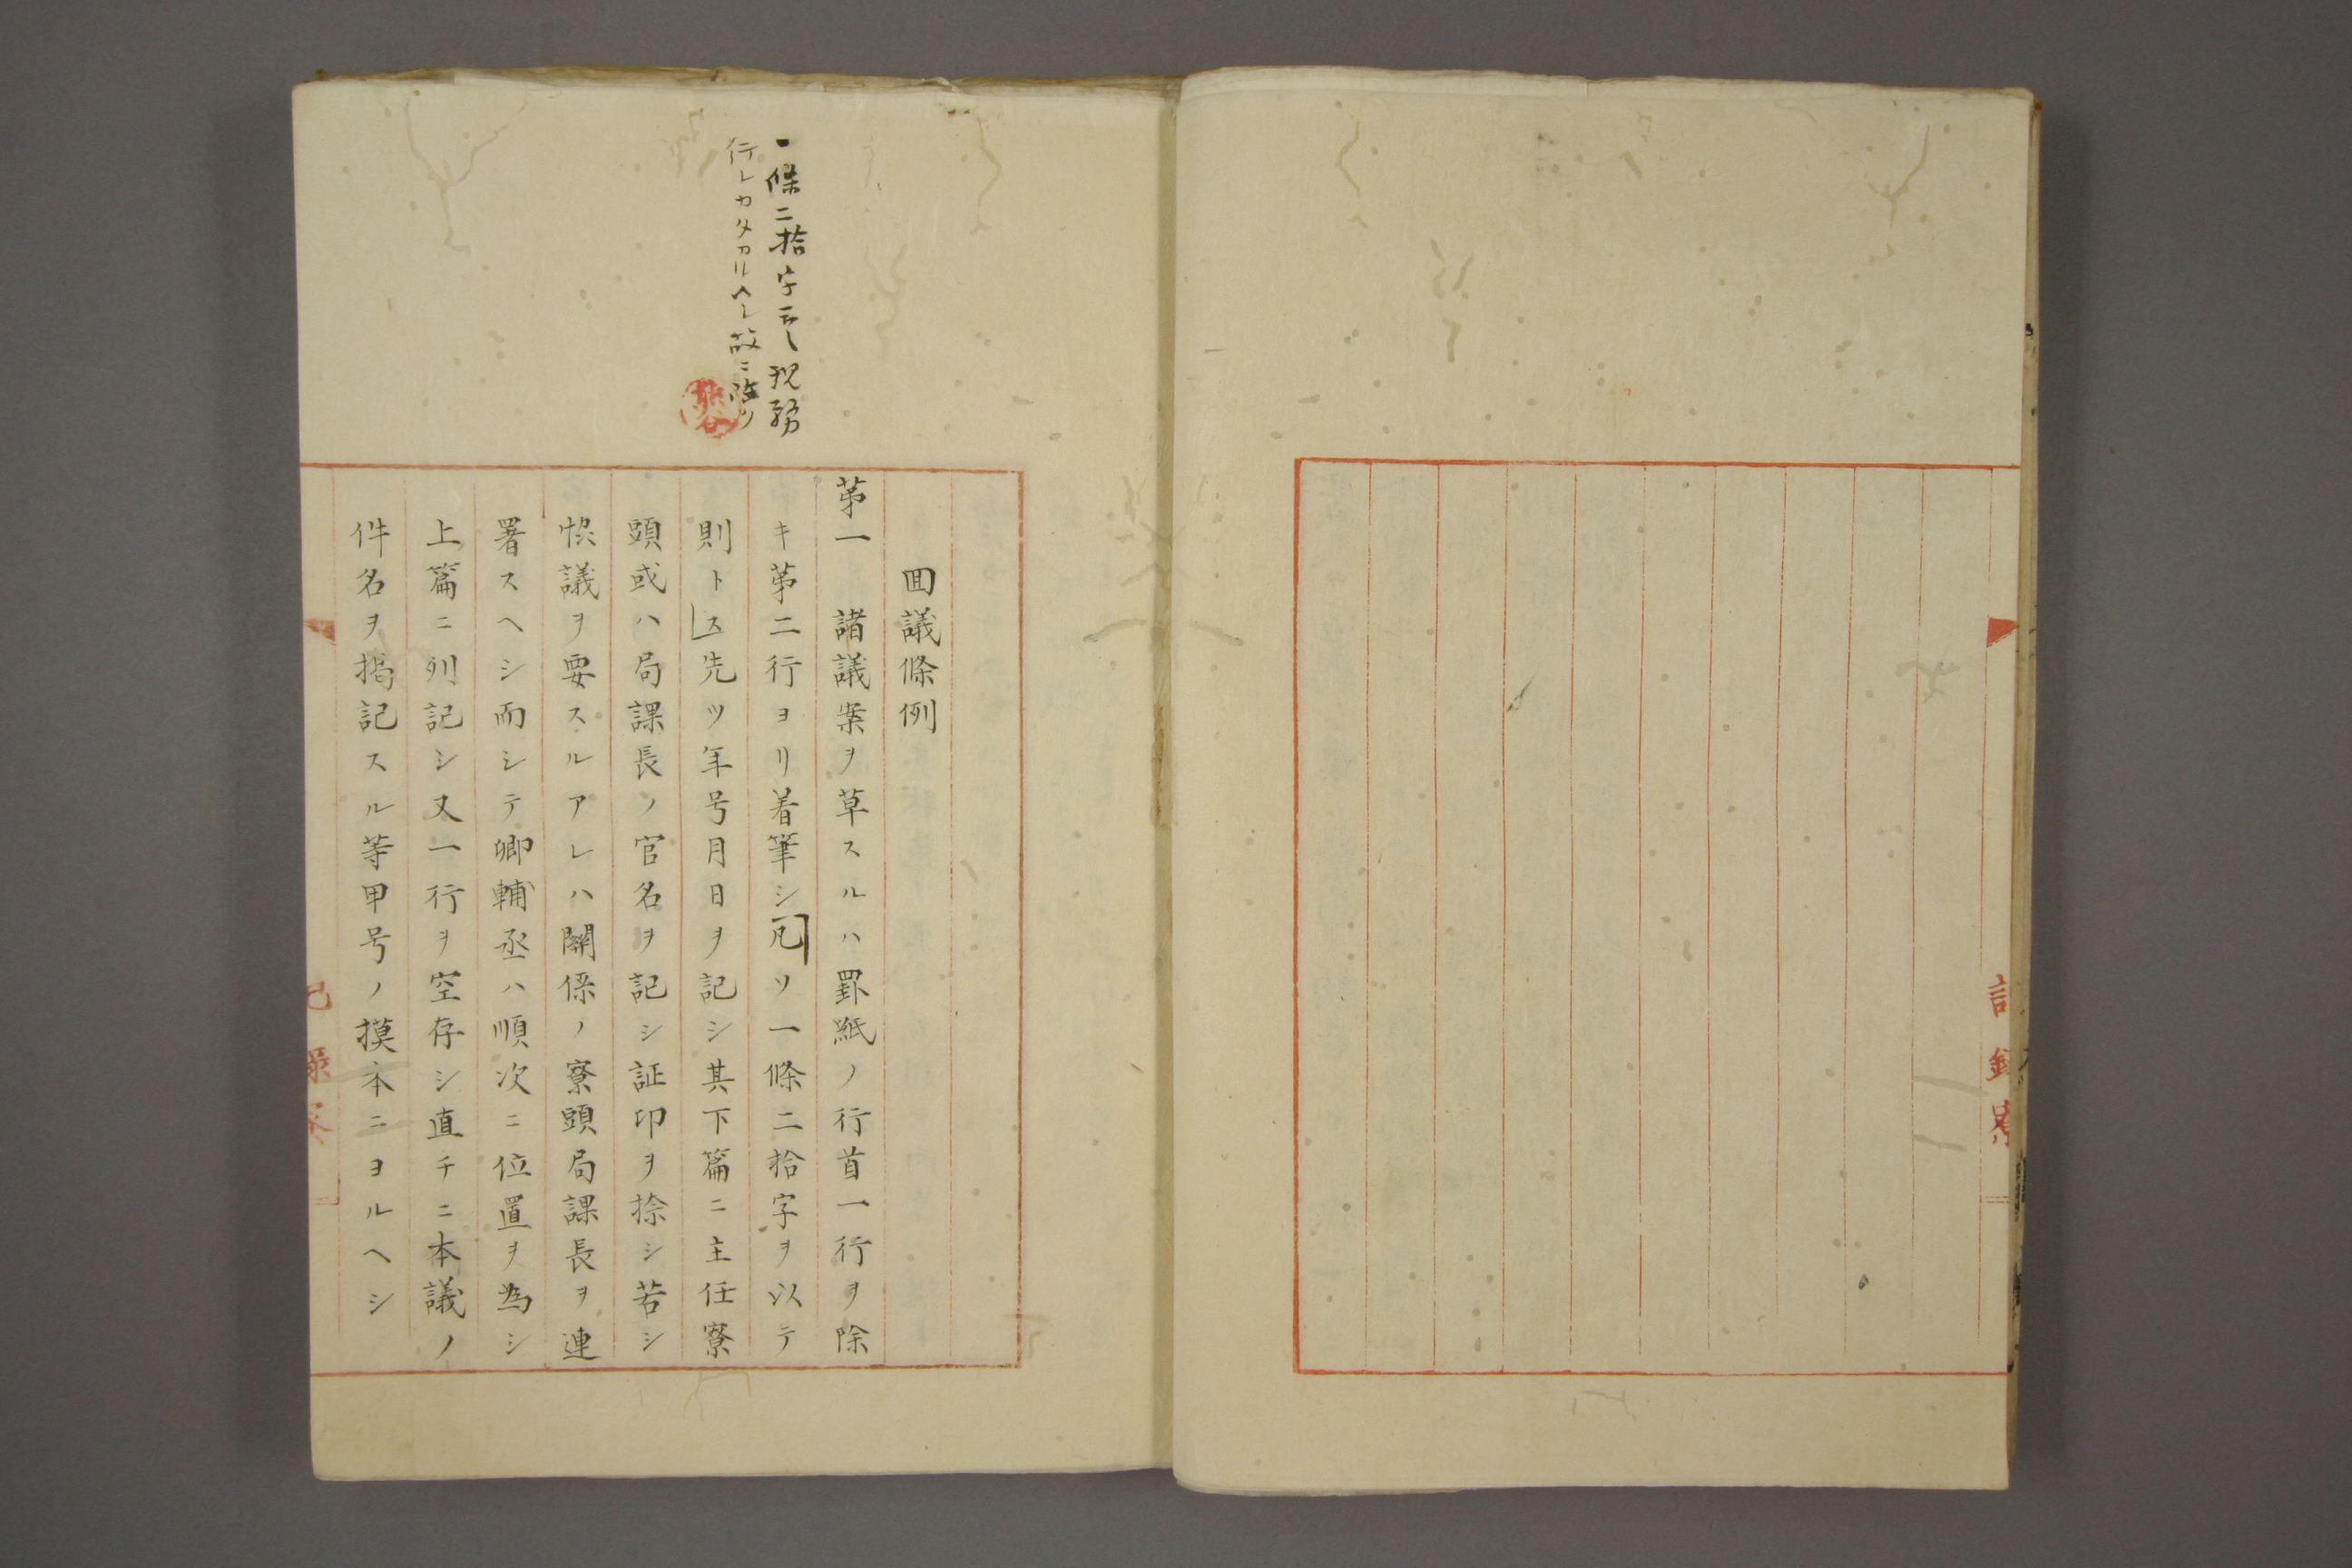 一條二拾字云〻現務
行レカタカルヘシ故ニ除ク
熊谷
回議條例
第一　諸議案ヲ草スルハ罫紙ノ行首一行ヲ除
キ第二行ヨリ着筆シ凡ソ一條二拾字ヲ以テ
則トス先ツ年号月日ヲ記シ其下篇ニ主任寮
頭或ハ局課長ノ官名ヲ記シ証印ヲ捺シ若シ
恊議ヲ要スルアレハ關係ノ寮頭局課長ヲ連
署スヘシ而シテ卿輔丞ハ順次ニ位置ヲ為シ
上篇ニ列記シ又一行ヲ空存シ直チニ本議ノ
件名ヲ掲記スル等甲号ノ摸本ニヨルヘシ
記録寮